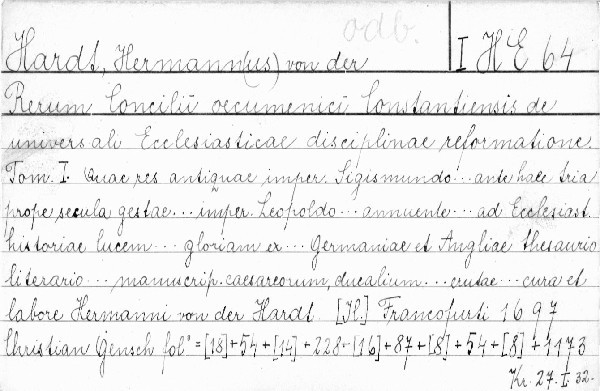 odb.
Hardt, Hermann(us) von der I H E 64
Rerum Concilii oecumenici Constantiensis de
universali Ecclesiasticae disciplinae reformatione.
Tom. I. Quae res antiquae imper. Sigismundo... ante haec tria
prope secula gestae... imper. Leopoldo... annuente... ad Ecclesiast.
historiae lucem... gloriam ex... Germaniae et Angliae thesaurio
literario... manuscrip. caesareorum, ducalium... erutae... cura et
labore Hermanni von der Hardt. [Il.] Francofurti 1697
Christian Gensch fol° = [18]+54+[14]+228+[16]+87+[8]+54+[8]+1173
Kr. 27.I.32.